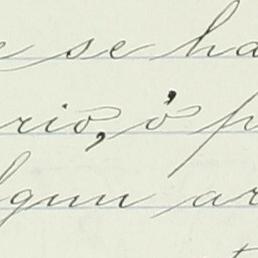 e se ha
rio, ó p
lgun ar